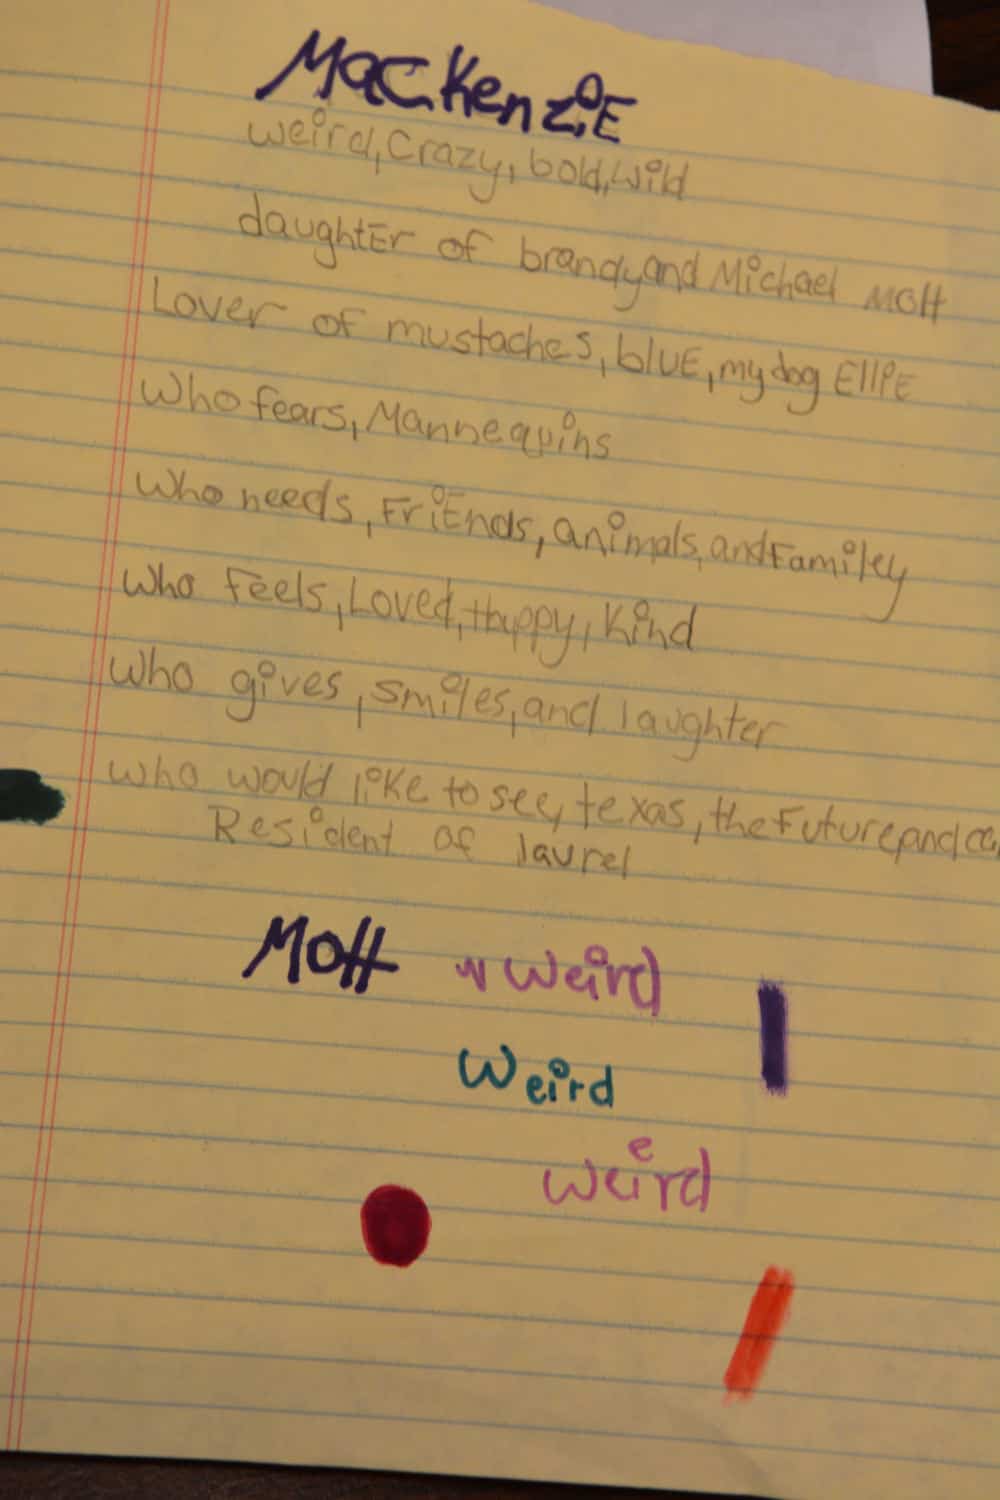 MacKenziE
weird, Crazy, bold, wild
daughtEr of brandy and Michael Mott
Lover of mustaches, bluE, my dog ElliE
Who fears, Mannequins
Who needs, FriEnds, animals, and Familey
Who feels, Loved, Happy, Kind
Who gives, smiles, and laughter
Who would like to see, texas, the Future, and
Resident of laurel
Mott w weird
Weird
e
weird